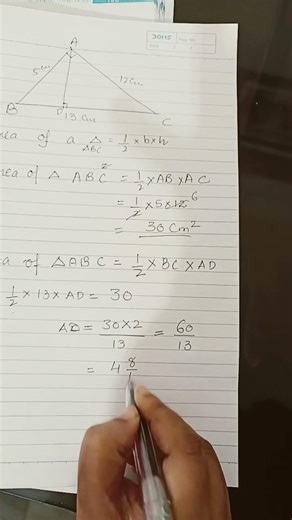 A
5cm 12cm
B D 13 cm C
rea of a △ = 1/2 × b × h
ABC
rea of △ ABC = 1/2 × AB × AC
2
= 1/2 × 5 × 12 6
= 30 cm²
a of △ABC = 1/2 × BC × AD
1/2 × 13 × AD = 30
AD = 30×2/13 = 60/13
= 4 8/1